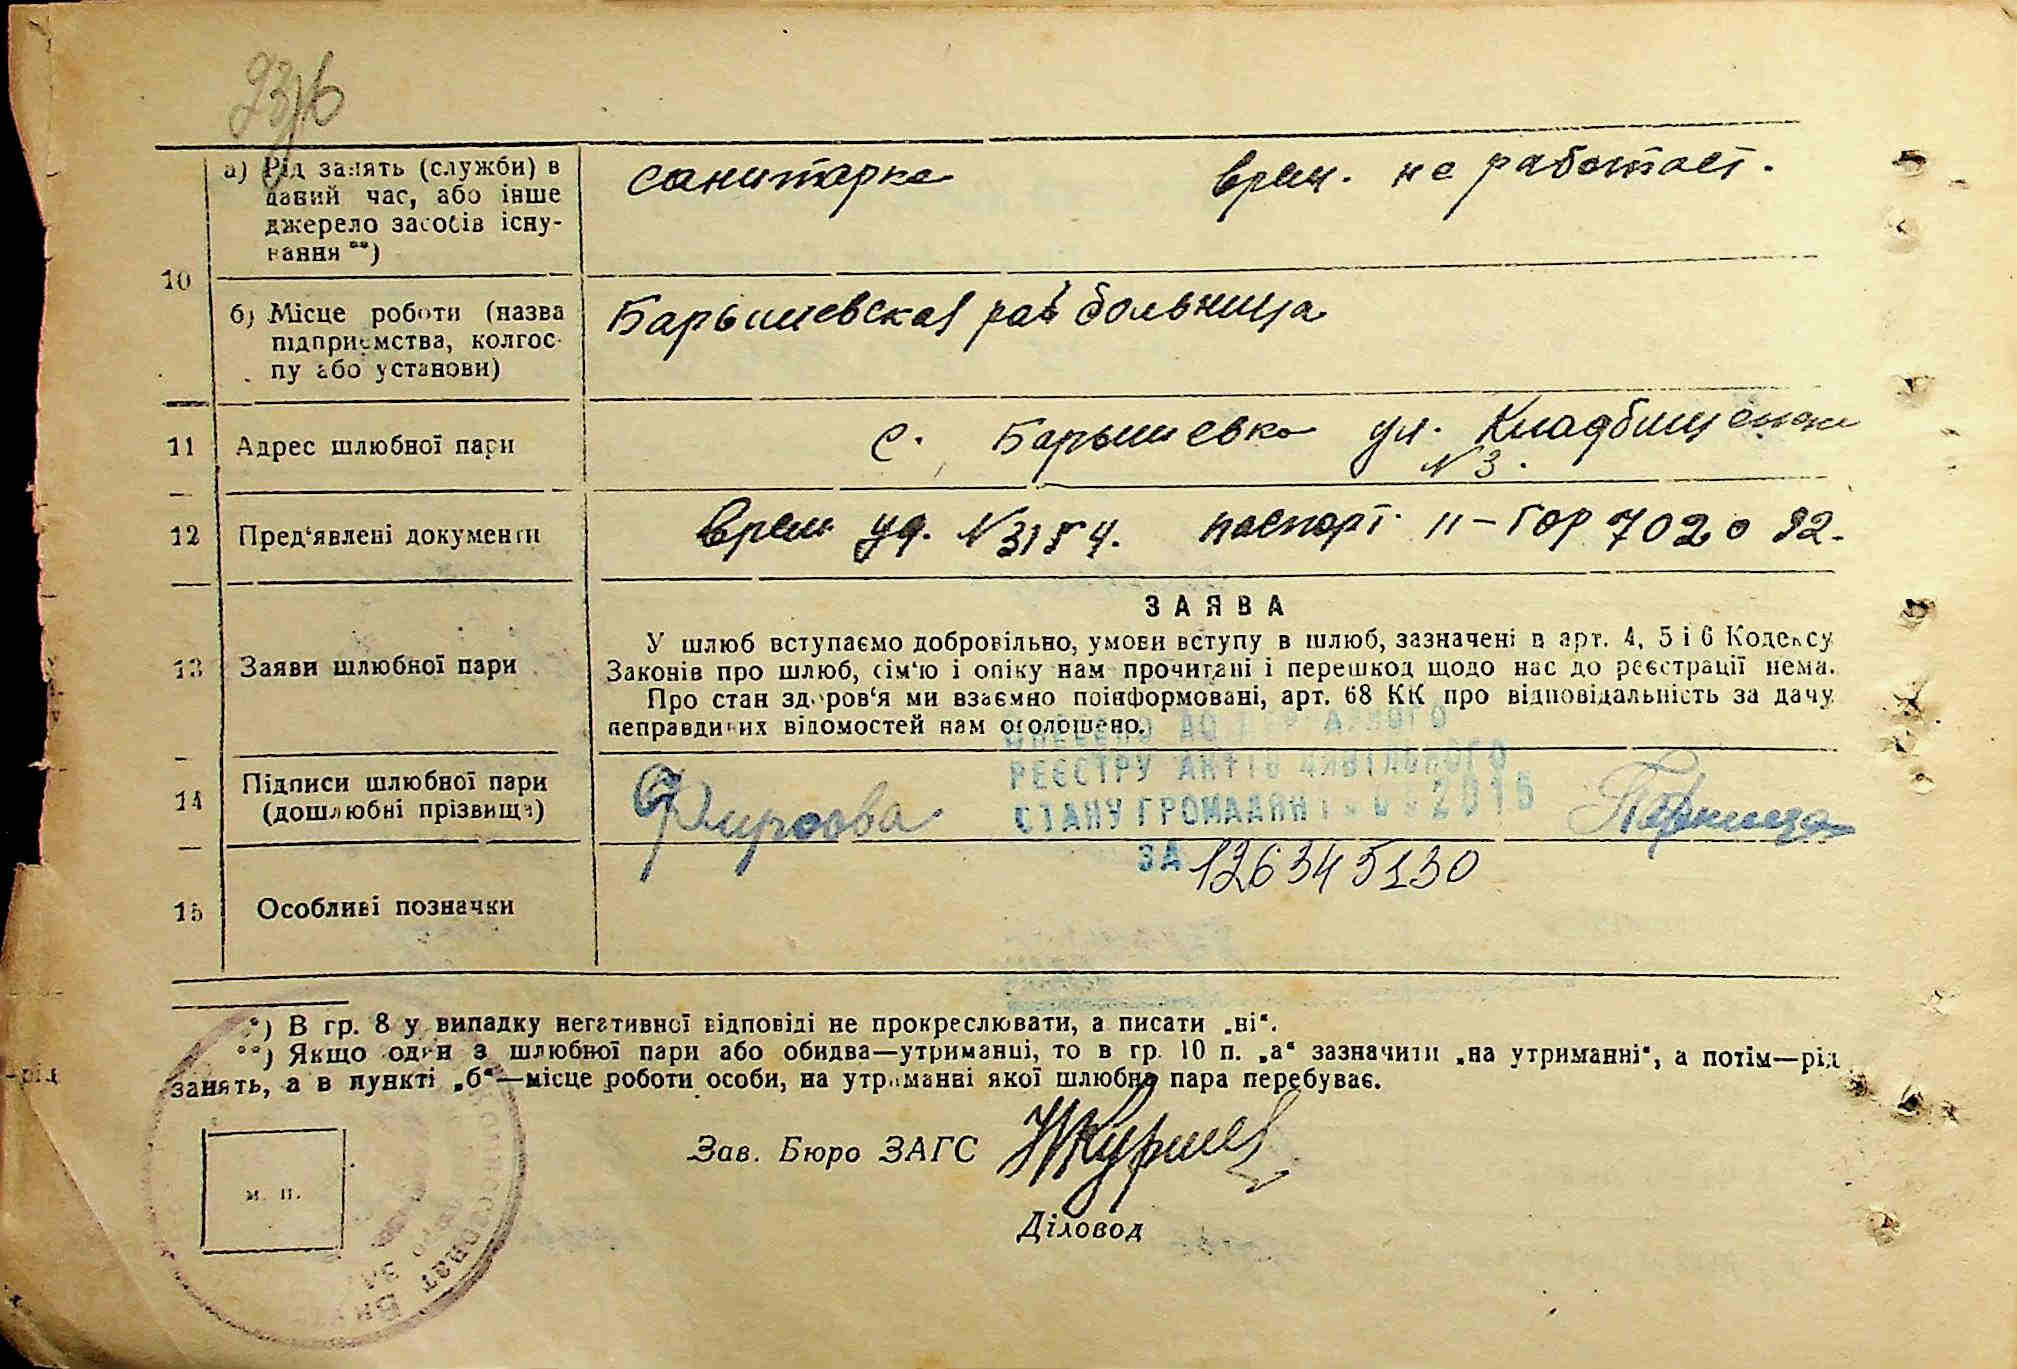 23/6
а) Рід занять (службн) в
даний час, або інше
джерело засобів існу-
вання **)
санитарка
врем. не работает.
10
б) Місце роботи (назва
підприємства, колгос-
пу або установи)
Барышевская рай больница
11
Адрес шлюбної пари
с. Барышевка ул. Кладбищенская
№ 3.
12
Пред'явлені документи
Врем уд. № 3184. паспорт II-ГОР 702092.
13
Заяви шлюбної пари
ЗАЯВА
У шлюб вступаємо добровільно, умови вступу в шлюб, зазначені в арт. 4, 5 і 6 Кодексу
Законів про шлюб, сім'ю і опіку нам прочитані і перешкод щодо нас до реєстрації нема.
Про стан здоров'я ми взаємно поінформовані, арт. 68 КК про відповідальність за дачу
неправдивих відомостей нам оголошено.
ВНЕСЕНО ДО ДЕРЖАВНОГО
РЕЄСТРУ АКТІВ ЦИВІЛЬНОГО
СТАНУ ГРОМАДЯН 2016
ЗА 126345130
14
Підписи шлюбної пари
(дошлюбні прізвища)
Фирсова
15
Особливі позначки
*) В гр. 8 у випадку негативної відповіді не прокреслювати, а писати „ні“.
**) Якщо один з шлюбної пари або обидва—утриманці, то в гр. 10 п. „а“ зазначити „на утриманні“, а потім—рід
занять, а в пункті „б“—місце роботи особи, на утриманні якої шлюбна пара перебуває.
Зав. Бюро ЗАГС
м. п.
Діловод